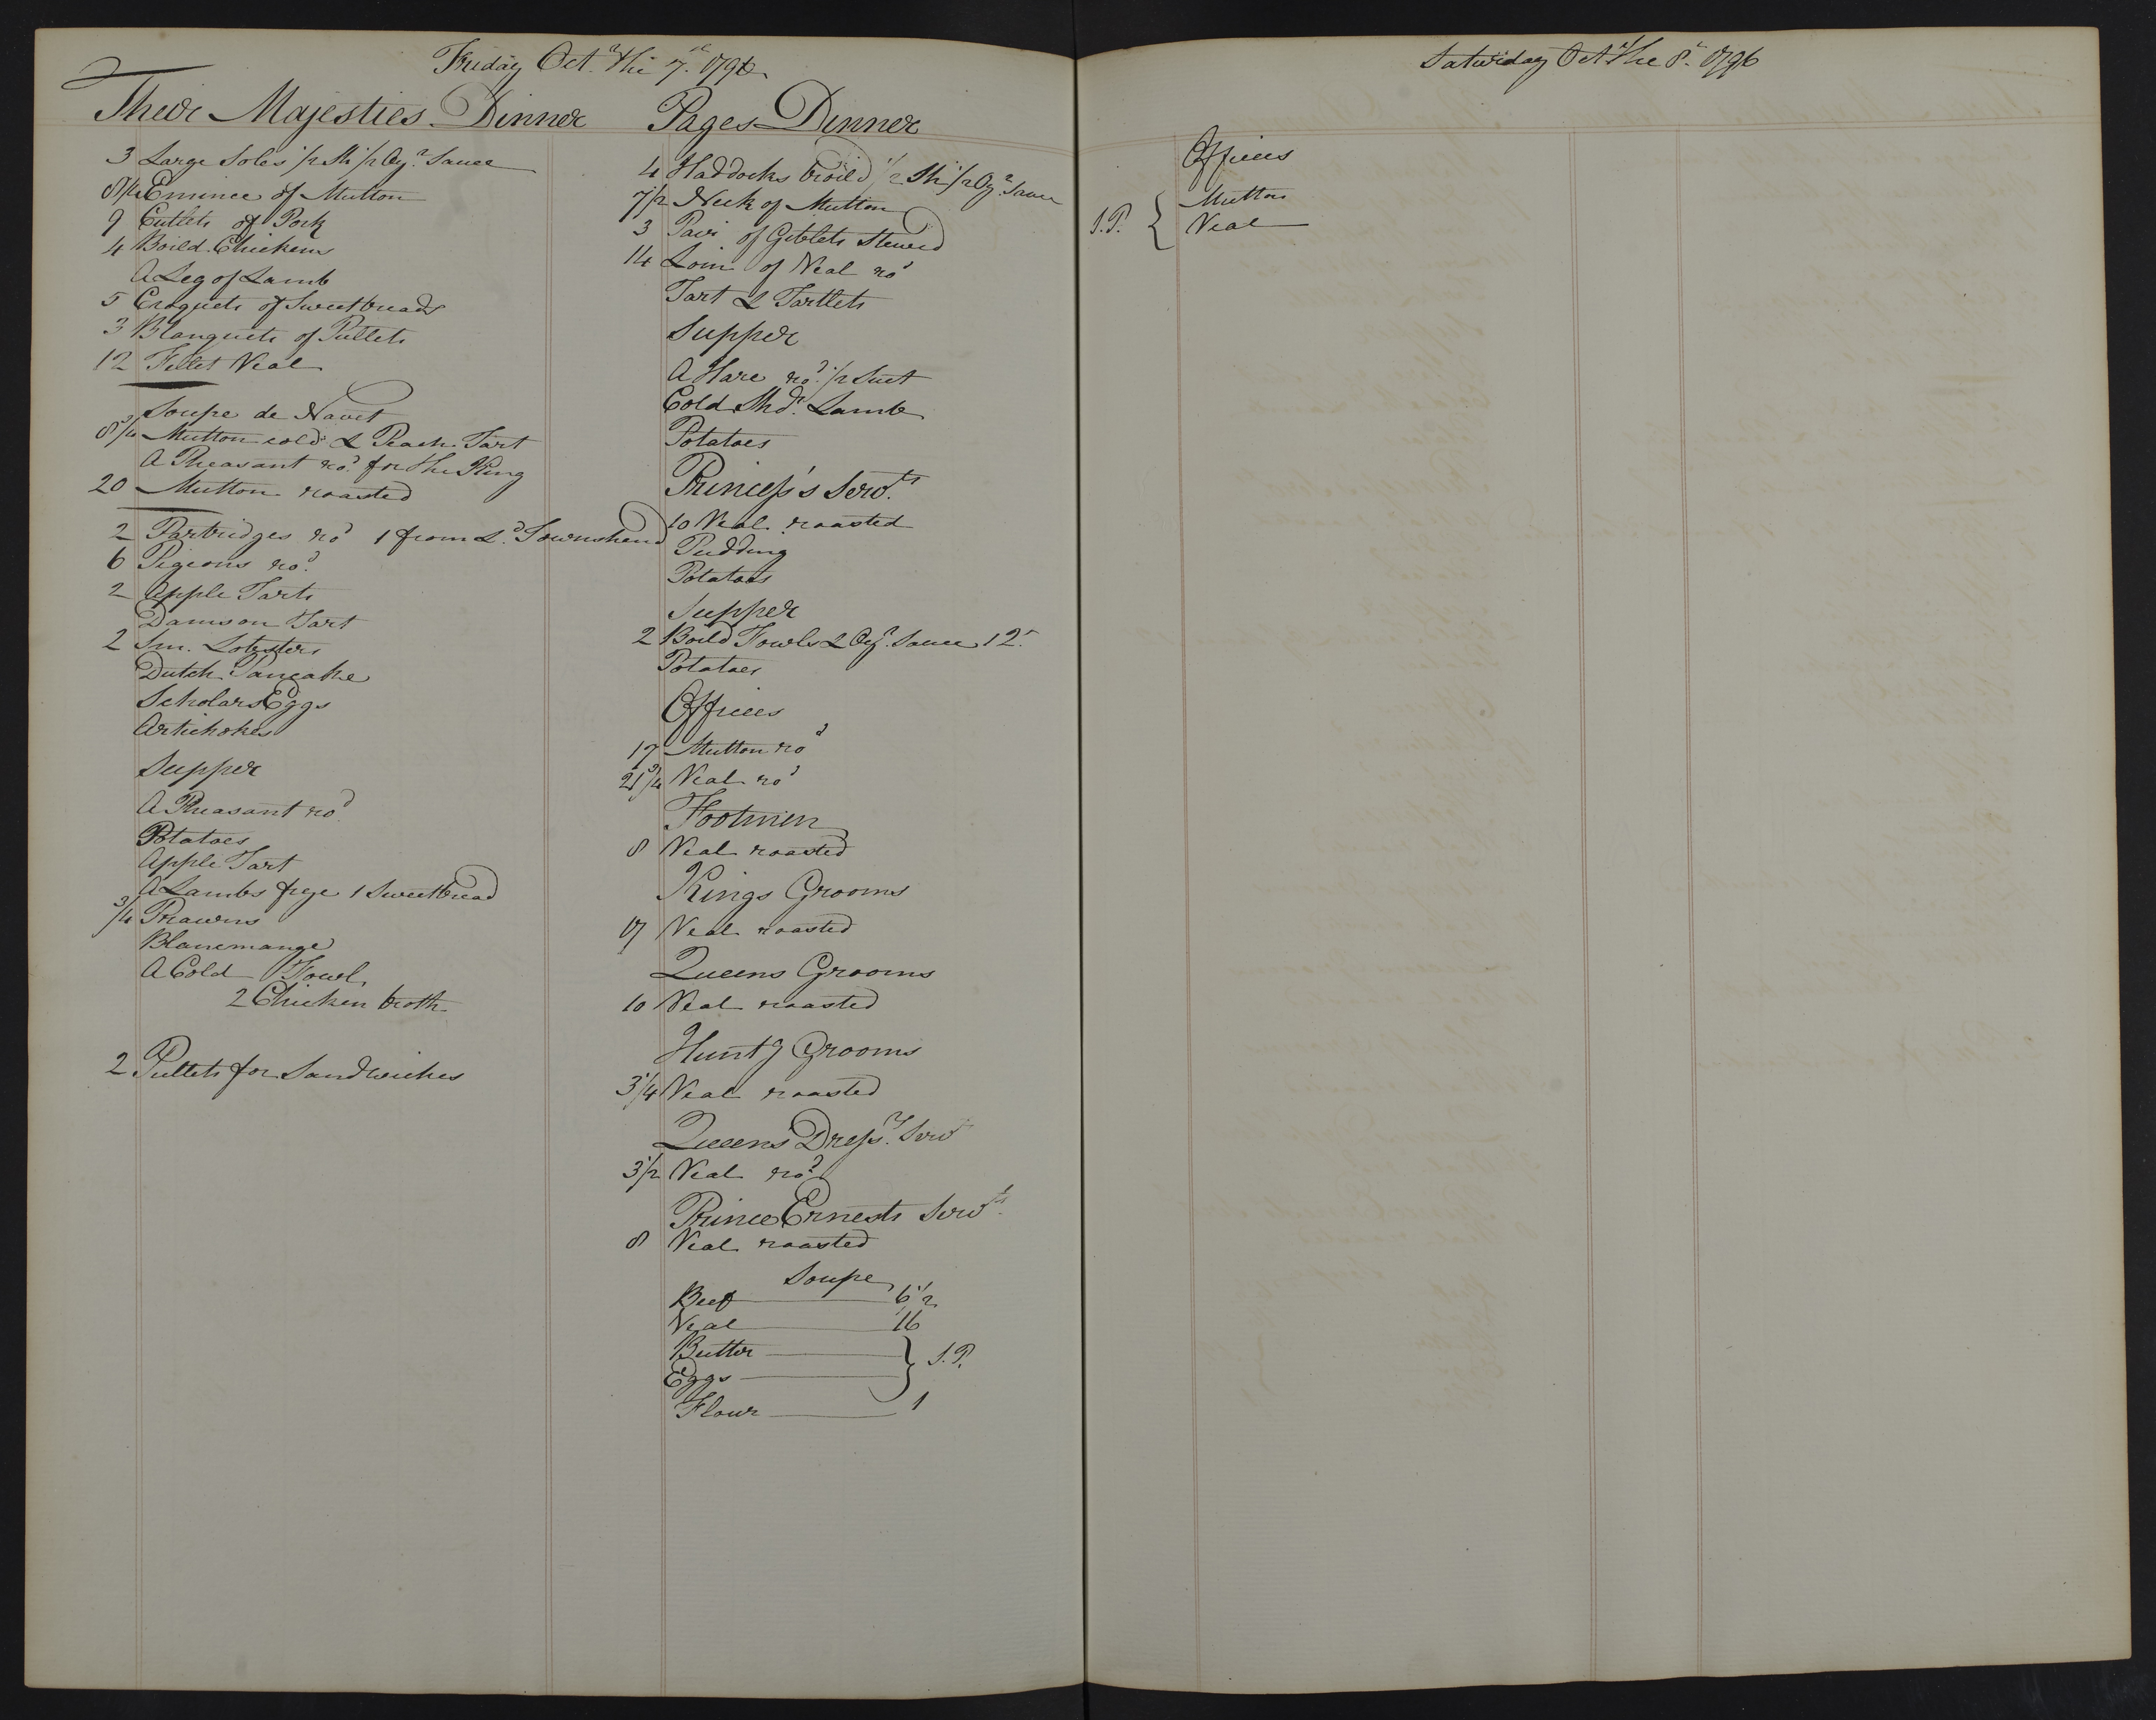 Friday Oct.r the 7.th 1796
Their Majesties Dinner
3 Large Soles 1/2 Sh: 1/2 Oy.r Sauce
8 1/4 Emince of Mutton
9 Cutlets of Pork
4 Boild Chickens
A Leg of Lamb
5 Croquets of Sweetbreads
3 Blanquets of Pullets
12 Fillet Veal
Soupe de Navet
8 3/4 Mutton cold & Peach Tart
A Pheasant ro.d for the King
20 Mutton roasted
2 Partridges ro.d 1 from L.d Townshend
6 Pigeons ro.d
2 Apple Tarts
Damson Tart
2 Sm. Lobsters
Dutch Pancake
Scholars Eggs
Artichokes
Supper
A Pheasant ro.d
Potatoes
Apple Tart
A Lambs frye 1 Sweetbread
3/4 Prawns
Blancmange
A Cold Fowl
2 Chicken broth
2 Pullets for Sandwiches
Pages Dinner
4 Haddocks broild 1/2 Sh: 1/2 Oy.r Sauce
7 1/2 Neck of Mutton
3 Pair of Giblets Stewed
14 Loin of Veal ro.d
Tart & Tartlets
Supper
A Hare ro.d 1/2 Suet
Cold Sho.dr Lamb
Potatoes
Princess's Serv.ts
10 Veal roasted
Pudding
Potatoes
Supper
2 Boild Fowls & Oy.r Sauce 12.
Potatoes
Offices
17 Mutton ro.d
21 3/4 Veal ro.d
Footmen
8 Veal roasted
Kings Grooms
17 Veal roasted
Queens Grooms
10 Veal roasted
Hunt.g Grooms
3 1/4 Veal roasted
Queens Dress.rs Serv.t
3 1/2 Veal ro.d
Prince Ernests Serv.ts
8 Veal roasted
Soupe
Beef 6 1/2
Veal 16
Butter
Eggs } S.P.
Flour 1
Saturday Oct.r the 8.th 1796
Offices
Mutton
S.P. { Veal